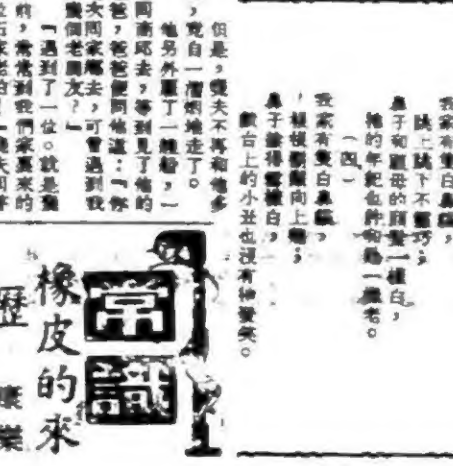 我家有隻白鼻貓，
跳上跳下不靈巧；
鼻子和祖母的頭髮一樣白，
牠的年紀也許和她一樣老。
（四）
我家有隻白鼻貓，
根根鬍鬚向上翹；
鼻子搽得雪樣白，
戲台上的小丑也沒有牠發笑。
但是，漁夫不再和他多
，竟自一溜烟地走了。
他另外雇了一艘船，一
同商邱去，等到見了他的
爸，爸爸便問他道：「你
次回家鄉去，可曾遇到我
幾個老朋友？」
「遇到了一位。就是
前，常常到我們家裏來的
位石家老伯
常識
橡皮的來
歷